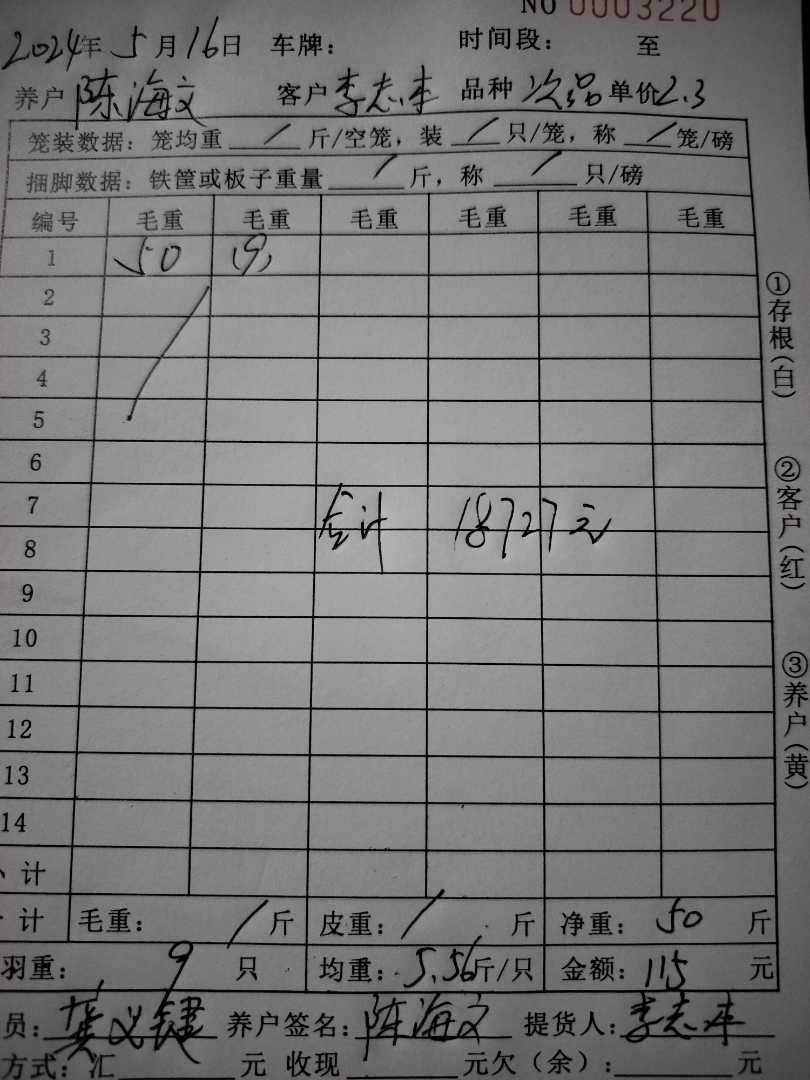 NO 0003220
2024年 5月16日 车牌: 时间段: 至
养户 陈海文 客户 李志本 品种 次品 单价2.3
笼装数据: 笼均重 / 斤/空笼, 装 / 只/笼, 称 / 笼/磅
捆脚数据: 铁筐或板子重量 / 斤, 称 / 只/磅
编号 毛重 毛重 毛重 毛重 毛重 毛重
1 50 (9)
2
3
4
5
6
7
合计 18727元
8
9
10
11
12
13
14
计
计 毛重: / 斤 皮重: / 斤 净重: 50 斤
羽重: 9 只 均重: 5.56斤/只 金额: 115 元
员: 龚义键 养户签名: 陈海文 提货人: 李志本
方式: 汇 元 收现 元欠(余): 元
①存根(白)
②客户(红)
③养户(黄)